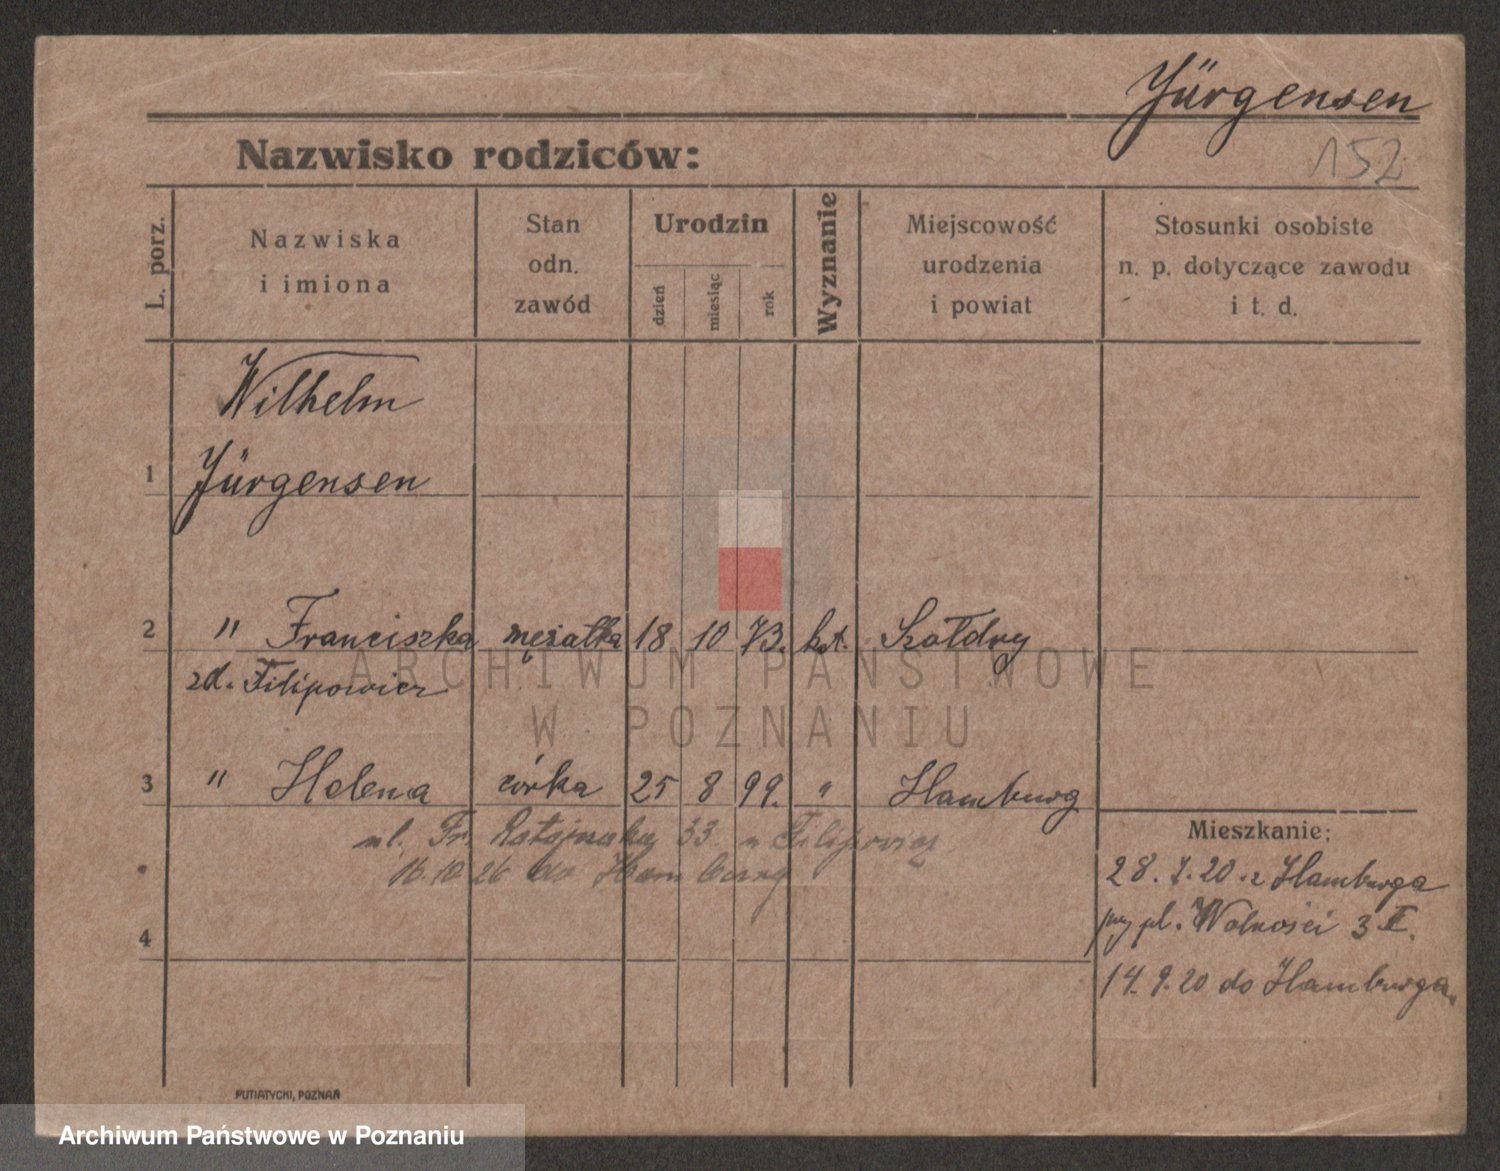 Jürgensen
152
Nazwisko rodziców:
L. porz.
Nazwiska
i imiona
Stan
odn.
zawód
Urodzin
dzień
miesiąc
rok
Wyznanie
Miejscowość
urodzenia
i powiat
Stosunki osobiste
n. p. dotyczące zawodu
i t. d.
Wilhelm
1 Jürgensen
2 " Franciszka mężatka 18 10 73. kat. Szołdry
zd. Filipowicz
ARCHIWUM PAŃSTWOWE
W POZNANIU
3 " Helena córka 25 8 99. " Hamburg
ul. Fr. Ratajczaka 33 u Filipowicz
16.10.26 do Hamburg
Mieszkanie:
28. 7. 20. z Hamburga
przy pl. Wolności 3 II.
14. 9. 20 do Hamburga.
4
PUTIATYCKI, POZNAŃ
Archiwum Państwowe w Poznaniu